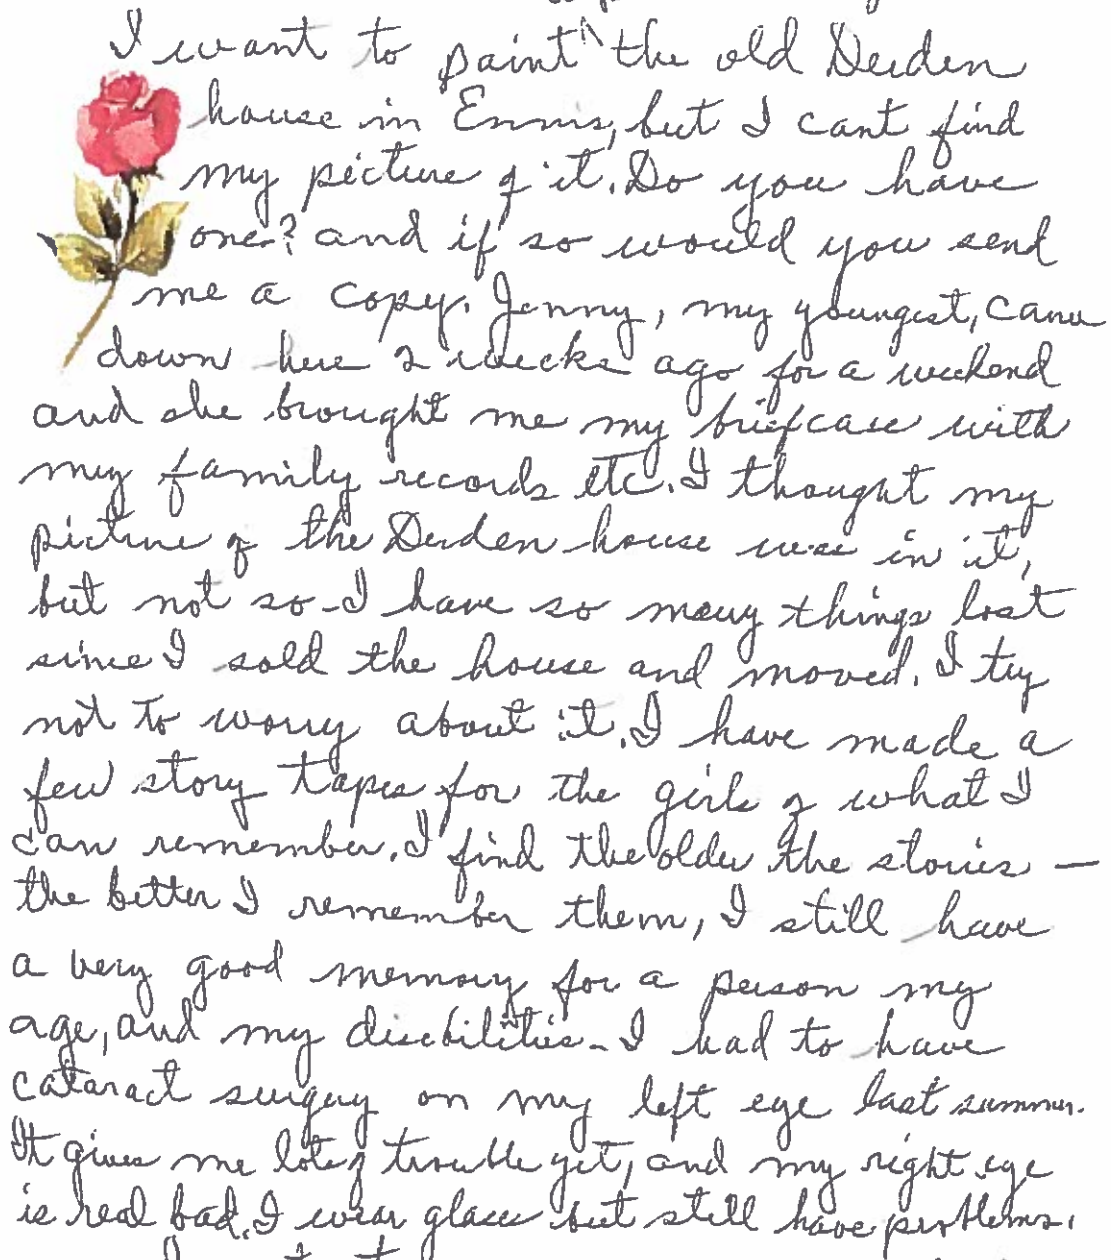 I want to paint the old Deiden
house in Ennis, but I cant find
my picture of it. Do you have
one? and if so would you send
me a copy. Jenny, my youngest, came
down here 2 weeks ago for a weekend
and she brought me my briefcase with
my family records etc. I thought my
picture of the Deiden house was in it,
but not so - I have so many things lost
since I sold the house and moved. I try
not to worry about it. I have made a
few story tapes for the girls of what I
can remember. I find the older the stories —
the better I remember them, I still have
a very good memory for a person my
age, and my disabilities - I had to have
cataract surgery on my left eye last summer.
It gives me lots of trouble yet, and my right eye
is real bad. I wear glasses but still have problems.